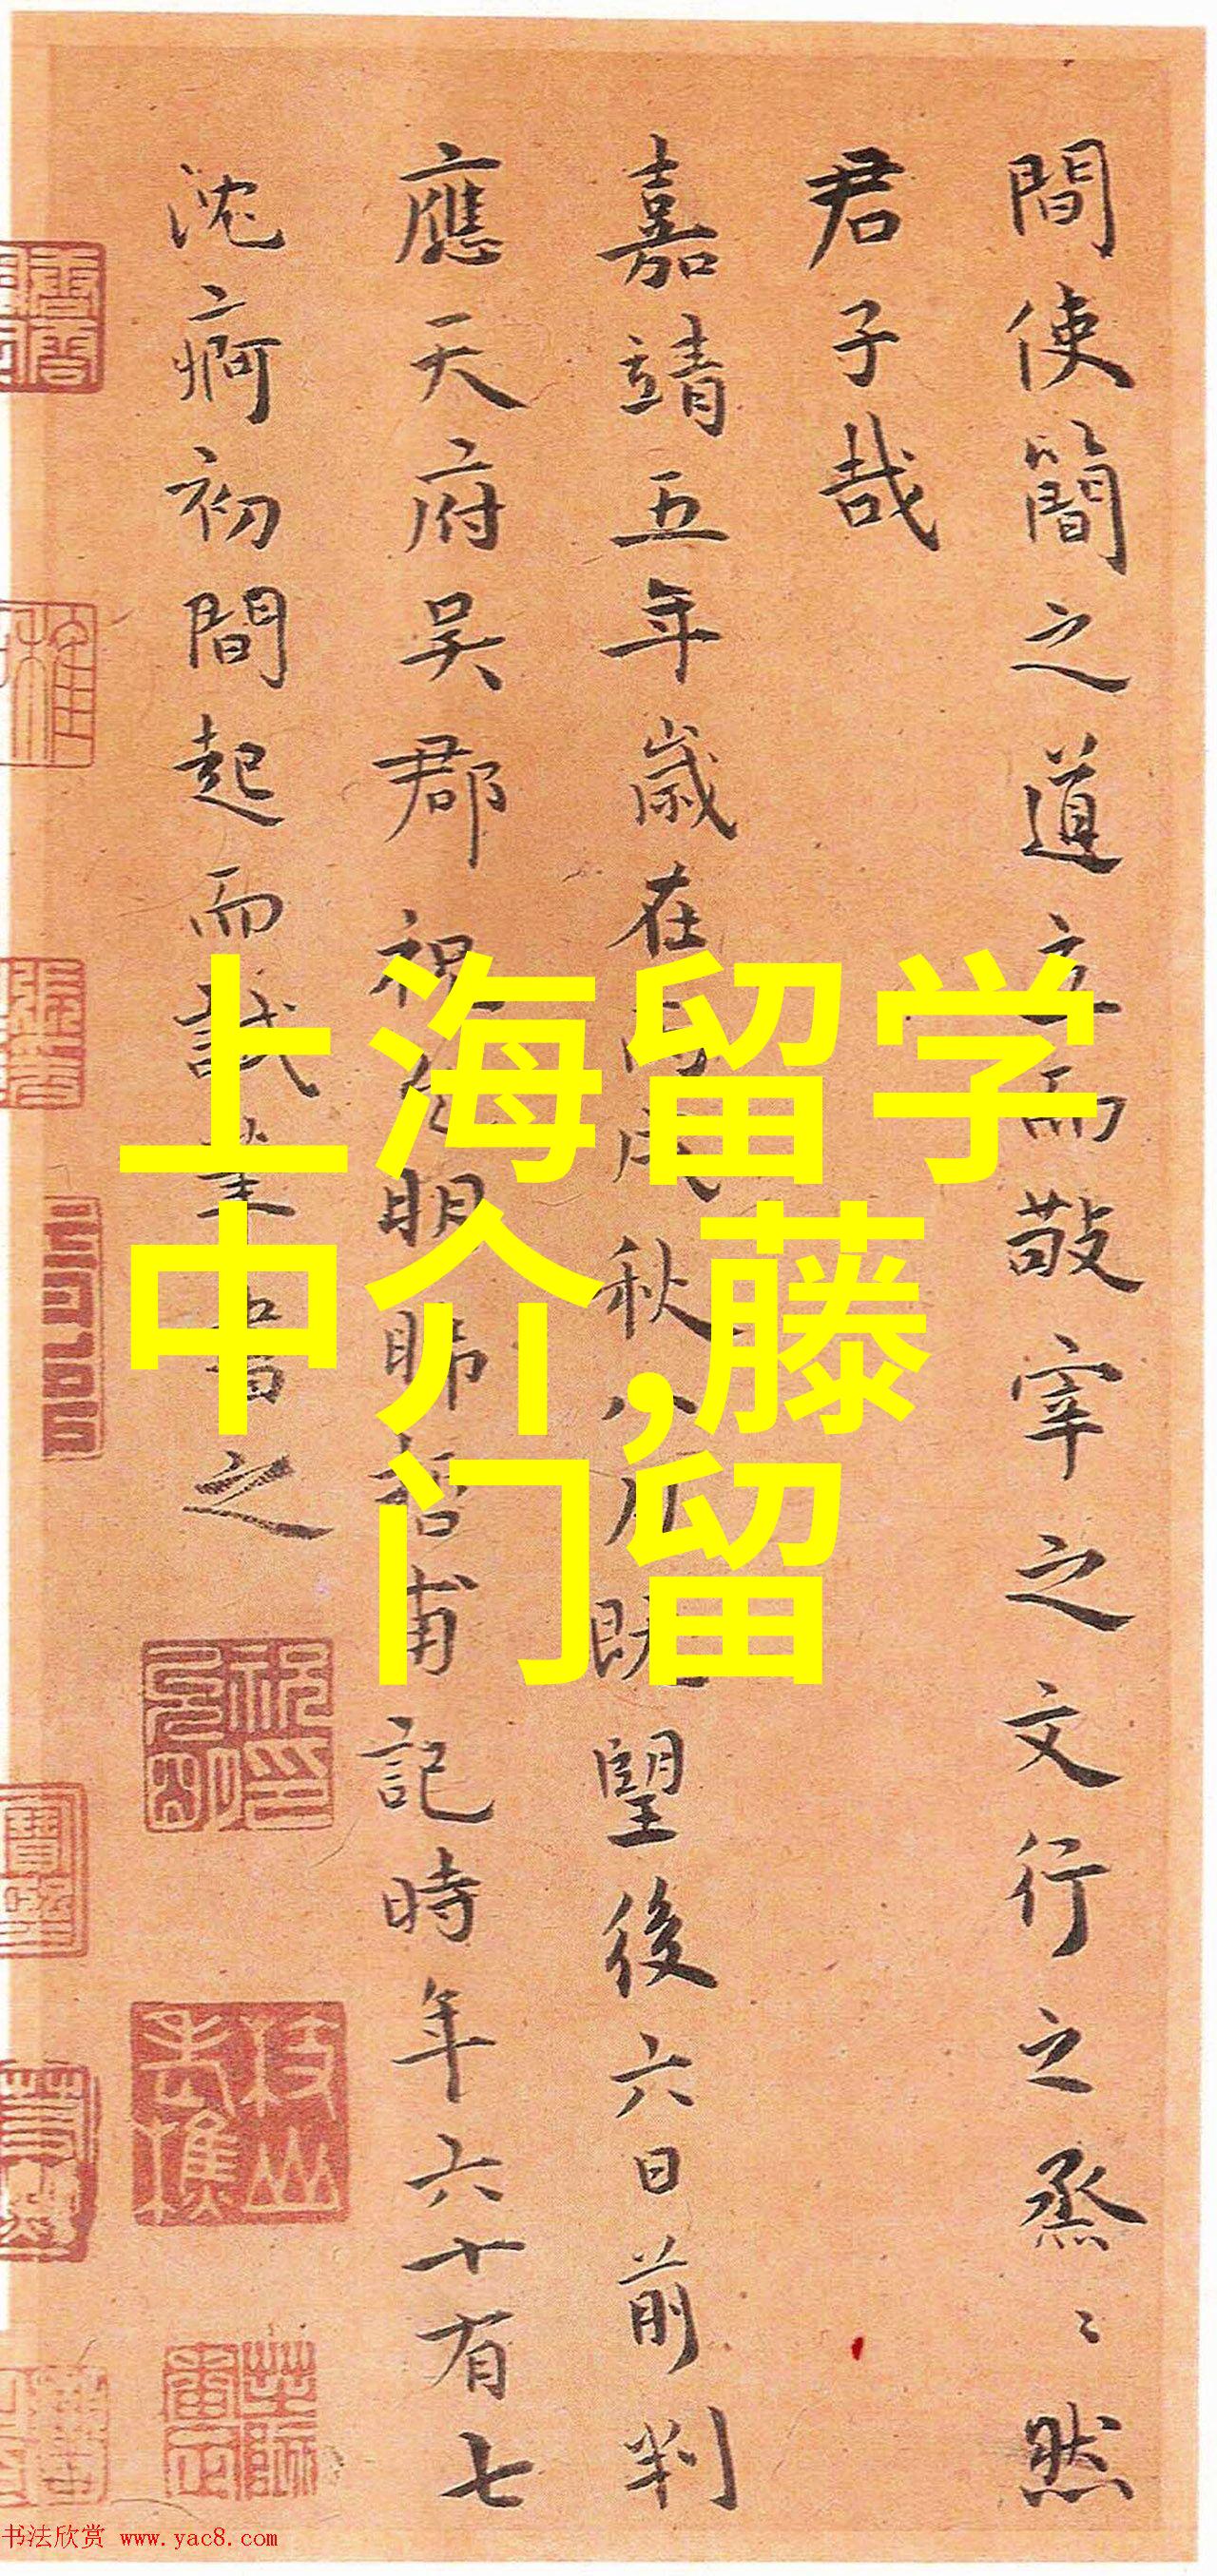 間使簡之道立而敬宰之文行之烝〻然
君子哉
嘉靖五年歲在丙戌秋八月既望後六日前判
應天府吳郡祝允明晞哲甫記時年六十有七
沈痾初間起而試筆書之
上海留学
中介,藤
门留
书法欣赏 www.yac8.com